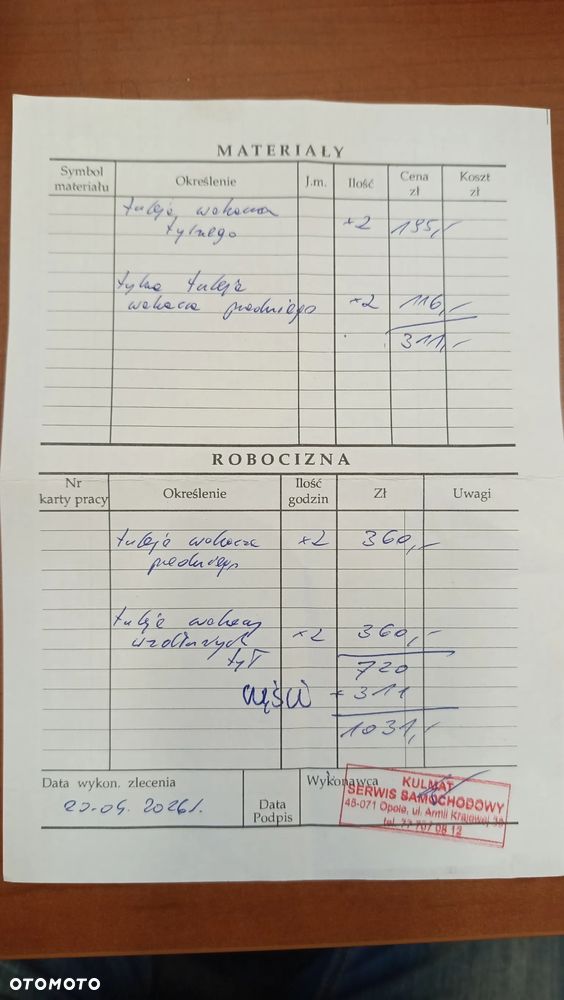 MATERIAŁY
Symbol materiału Określenie J.m. Ilość Cena zł Koszt zł
tuleja wahacza
tylnego x2 195,-
tylna tuleja
wahacza przedniego x2 116,-
311,-
ROBOCIZNA
Nr karty pracy Określenie Ilość godzin Zł Uwagi
tuleja wahacza x2 360,-
przedniego
tuleje wahaczy
wzdłużnych x2 360,-
tył 720
CZĘŚCI + 311
1031,-
Data wykon. zlecenia Data Podpis Wykonawca
2026r.
KULMAT
SERWIS SAMOCHODOWY
45-071 Opole, ul. Armii Krajowej
tel. 77 707 08 12
OTOMOTO